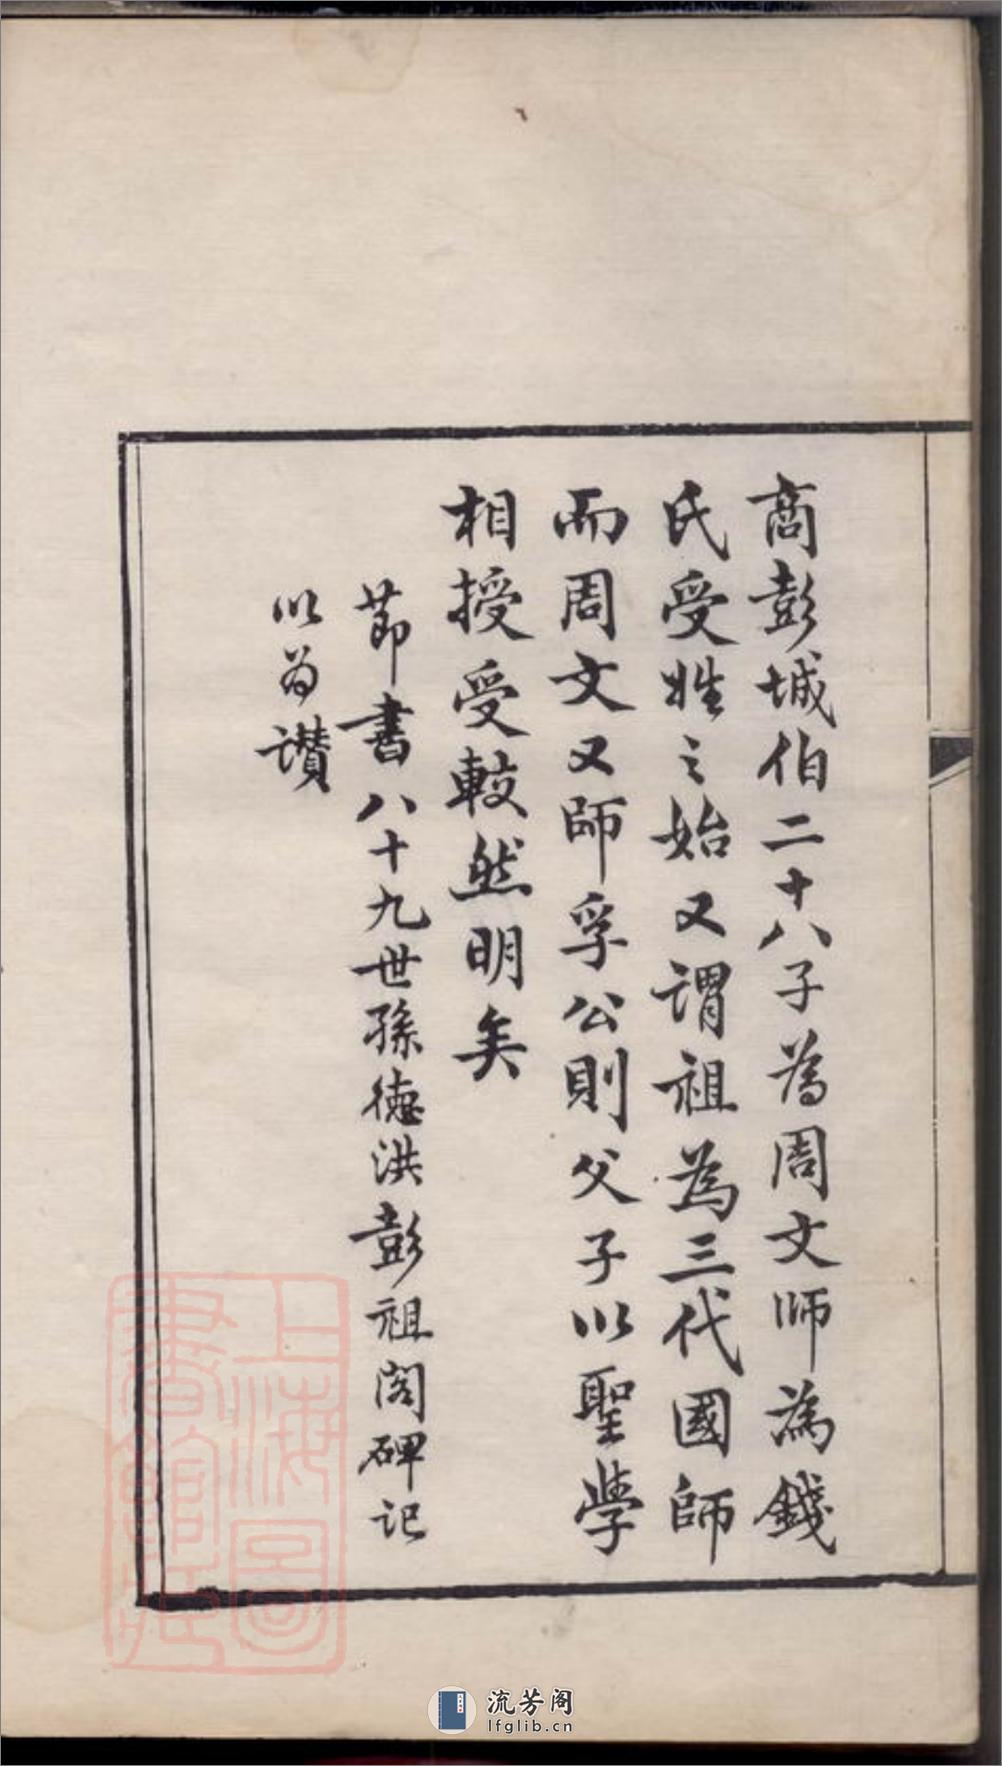 商彭城伯二十八子為周文師為錢
氏受姓之始又謂祖為三代國師
而周文又師孚公則父子以聖學
相授受較然明矣
節書八十九世孫德洪彭祖閣碑記
以為讃
上海圖
書館藏
流芳阁
lfglib.cn